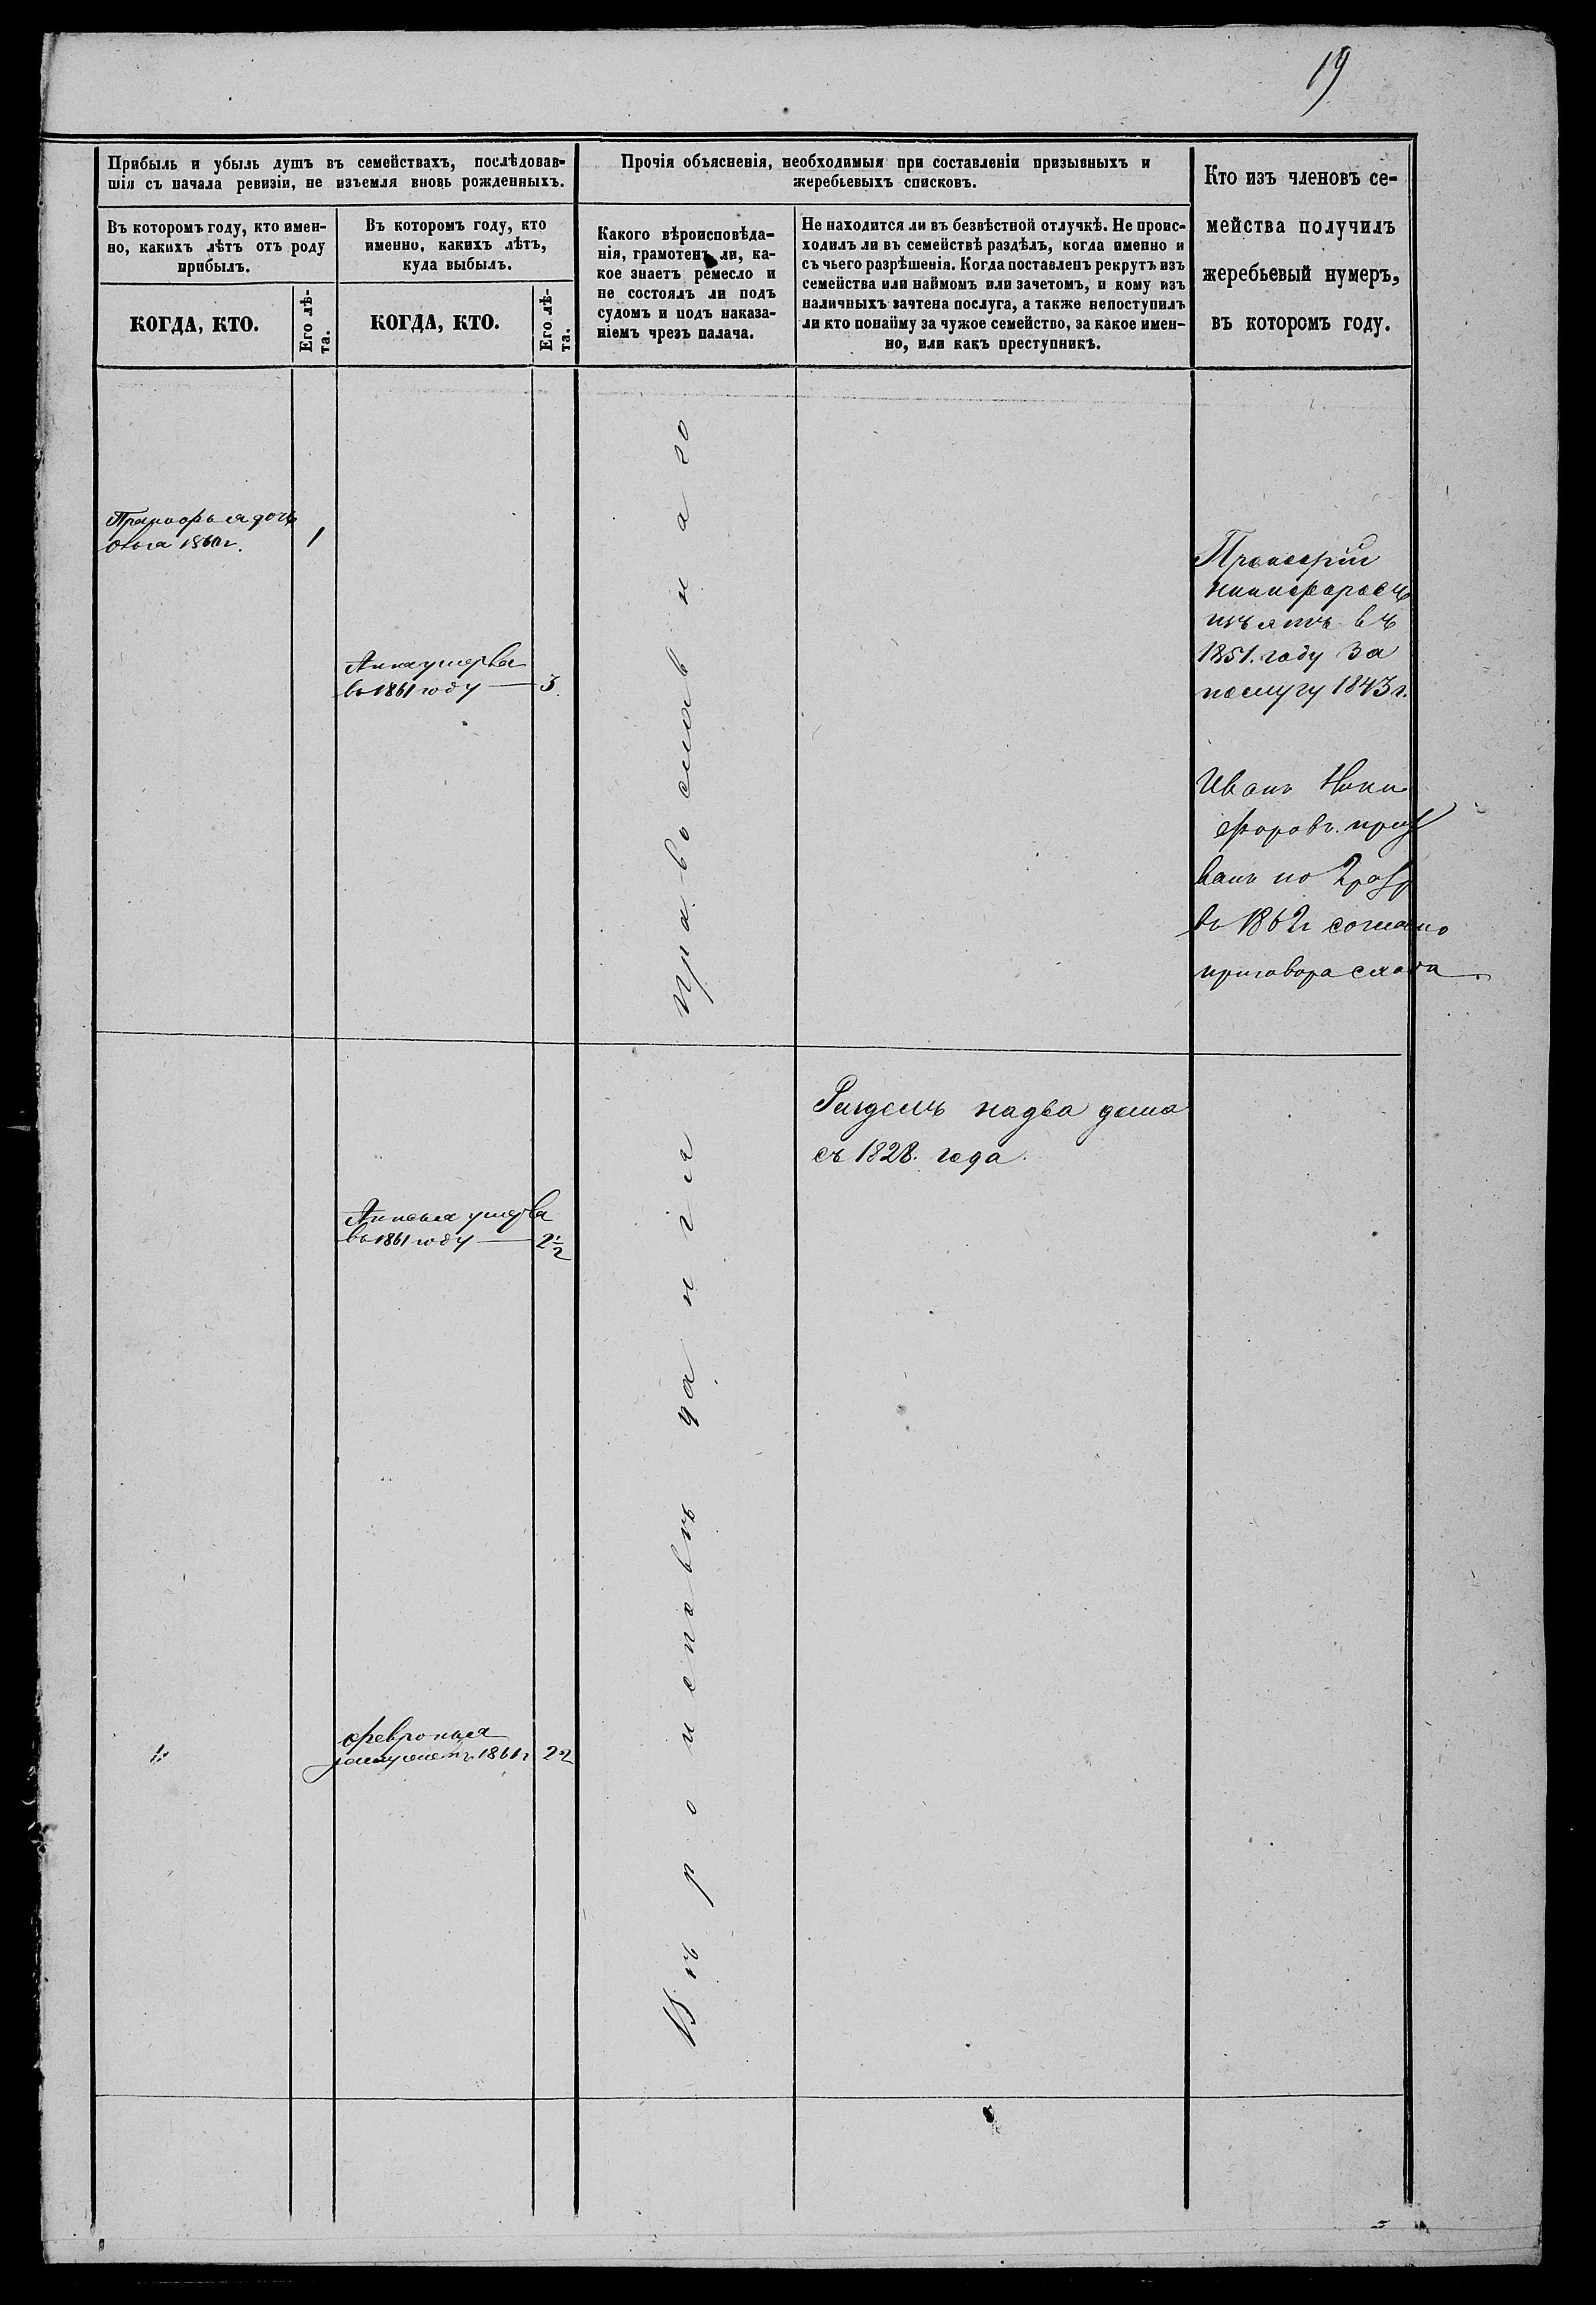 19
Прибыль и убыль душъ въ семействахъ, послѣдовав-
шія съ начала ревизіи, не изъемля вновь рожденныхъ.
Въ которомъ году, кто имен-
но, какихъ лѣтъ отъ роду
прибылъ.
Въ которомъ году, кто
именно, какихъ лѣтъ,
куда выбылъ.
КОГДА, КТО.
Его лѣ-
та.
КОГДА, КТО.
Его лѣ-
та.
Прочія объясненія, необходимыя при составленіи призывныхъ и
жеребьевыхъ списковъ.
Какого вѣроисповѣда-
нія, грамотенъ ли, ка-
кое знаетъ ремесло и
не состоялъ ли подъ
судомъ и подъ наказа-
ніемъ чрезъ палача.
Не находится ли въ безвѣстной отлучкѣ. Не проис-
ходилъ ли въ семействѣ раздѣлъ, когда именно и
съ чьего разрѣшенія. Когда поставленъ рекрутъ изъ
семейства или наймомъ или зачетомъ, и кому изъ
наличныхъ зачтена послуга, а также непоступилъ
ли кто понайму за чужое семейство, за какое имен-
но, или какъ преступникъ.
Кто изъ членовъ се-
мейства получилъ
жеребьевый нумеръ,
въ которомъ году.
дочь
1860 г.
1
Анна умерла
въ 1861 году
3
Вѣроисповѣданія православнаго
изъятъ въ
1851. году за
послугу 1843 г.
Иванъ Ники
форовъ. приз
ванъ по 2 разр
въ 1862 г согласно
приговора схода
Раздѣлъ на два дома
съ 1828. года.
умерла
въ 1861 году
2 1/2
Февронья
замужемъ 1861 г
22